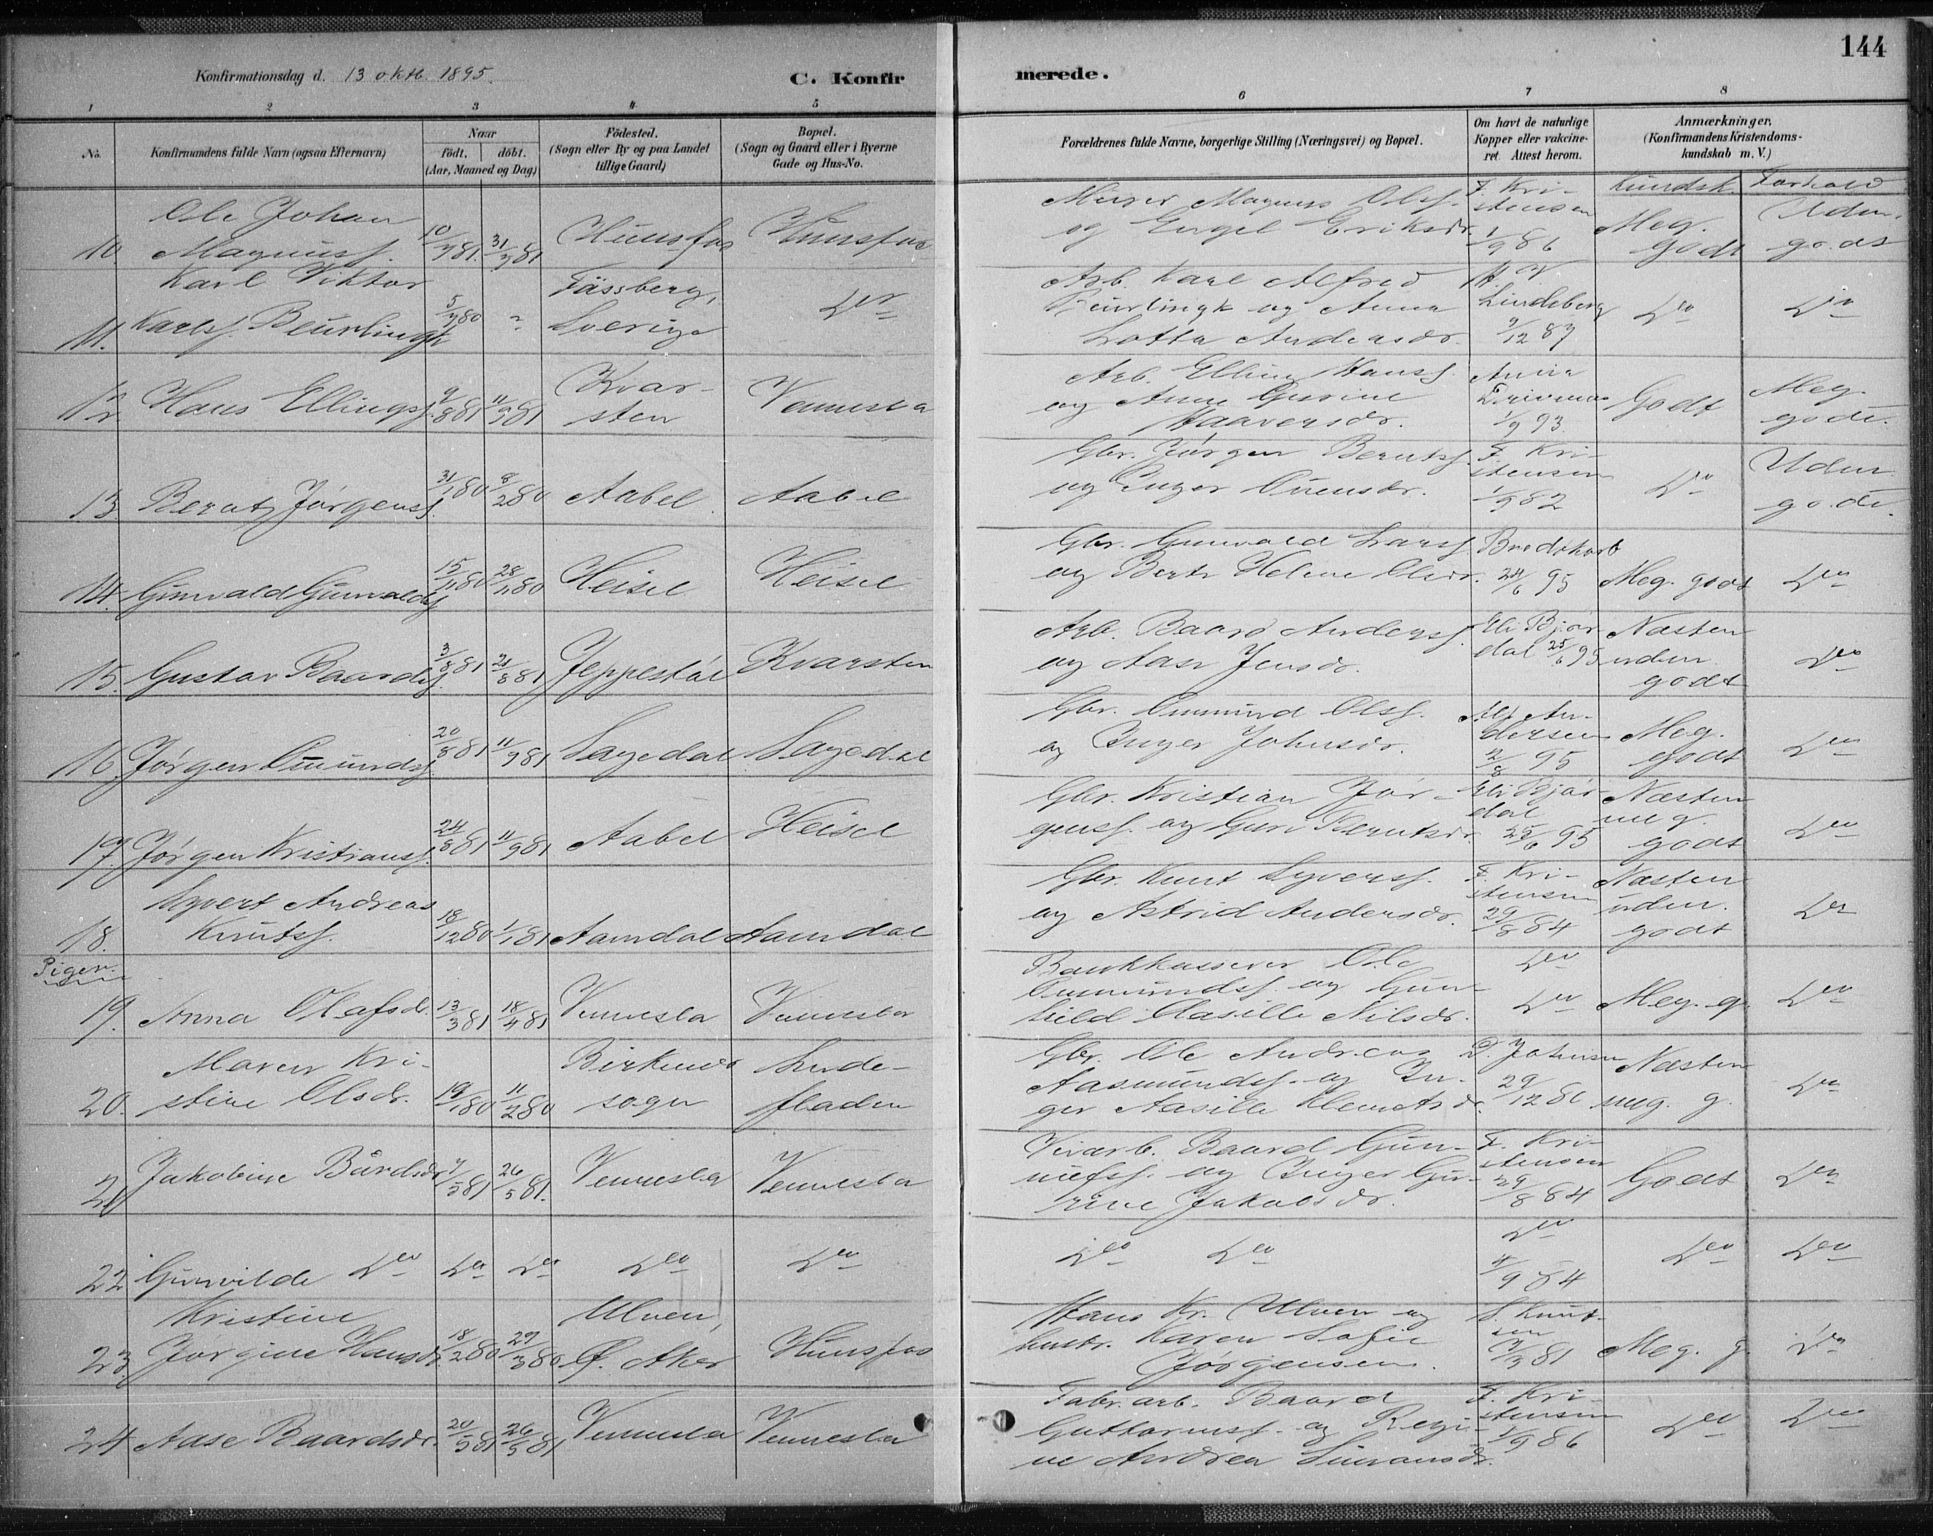 144
Konfirmationsdag d. 13 oktb. 1895.
C. Konfirmerede.
1 2 3 4 5 6 7 8
No.
Konfirmandens fulde Navn (ogsaa Efternavn)
Naar
født. døbt.
(Aar, Maaned og Dag)
Födested.
(Sogn eller By og paa Landet
tillige Gaard)
Bopæl.
(Sogn og Gaard eller i Byerne
Gade og Hus-No.
Forældrenes fulde Navne, borgerlige Stilling (Næringsvei) og Bopæl.
Om havt de naturlige
Kopper eller vakcine-
ret Attest herom.
Anmærkninger.
(Konfirmandens Kristendoms-
kundskab m. V.)
Kundsk. Forhold
10. Ole Johan
Magnuss. 10/7 81 31/7 81 Hunsfos Hunsfos
Murer Magnus Olss.
og Engel Eriksdr.
F. Kri-
stensen
1/9 86
Meg.
godt
Uden.
godt
11. Karl Viktor
Karlss. Beurlingk 5/7 80 ? Fässberg,
Sverige Do
Arb. Karl Alfred
Beurlingk og Anna
Lotta Andersdr.
Lindeberg
9/12 87
Do Do
12. Hans Ellingss. 9/8 81 11/9 81 Kvar-
sten Vennesla
Arb. Elling Hanss.
og Anne Gurine
Haaversdr.
1/9 93
Godt
Meg.
godt.
13. Berntz Jørgenss. 31/1 80 8/2 80 Aabel Aabel
Gbr. Jørgen Berntss.
og Inger Ouensdr.
F. Kri-
stensen
1/9 82
Do
Uden
godt.
14. Gunvald Gunvaldss. 15/11 80 28/11 80 Heisel Heisel
Gbr. Gunvald Larss.
og Berte Helene Olsdr.
24/6 95
Meg. godt Do
15. Gustav Baardss. 3/8 81 21/8 81 Jeppestøl Kvarsten
Arb. Baard Anderss.
og Aase Jensdr.
Eli Bjør-
dal 25/6 95
Næsten
uden
godt
Do
16. Jørgen Omundss. 20/8 81 11/9 81 Lagedal Lagedal
Gbr. Ommund Olss.
og Inger Johnsdr.
An-
dersen
2/8 95
Meg.
godt
Do
17. Jørgen Kristianss. 24/8 81 11/9 81 Aabel Heisel
Gbr. Kristian Jør-
genss. og Guro Berntsdr.
Eli Bjør-
dal
25/6 95
Næsten
meg.
godt
Do
18. Syvert Andreas
Knutss. 18/12 80 1/1 81 Aamdal Aamdal
Gbr. Knut Syverss.
og Astrid Andersdr.
F. Kri-
stensen
29/8 84
Næsten
uden.
godt
Do
Piger.
19. Anna Olafsdr. 13/3 81 18/4 81 Vennesla Vennesla
Bankkasserer Ole
Osmundss. og Gun-
hild Aasille Nilsdr.
Do
Do
Meg. g. Do
20. Maren Kri-
stine Olsdr. 19/1 80 11/2 80 Birkenes
sogn Lunde-
fladen
Gbr. Ole Andreas
Aasmundss. og In-
ger Aasille Klemetsdr.
D. Johnsen
29/12 80
Næsten
meg. g.
Do
21 Jakobine Bårdsdr. 7/5 81 26/5 81. Vennesla Vennesla
Veiarb. Baard Gun-
nufss. og Inger Gu-
rine Jakobsdr.
F. Kri-
stensen
29/8 84
Godt Do
22. Gunvilde Do Do Do Do Do
Do Do
Do
4/9 84
Do Do
23. Kristine
Jørgine Hansdr. 18/2 80 29/3 80 Ulven,
Ø. Aker Hunsfos
Hans Kr. Ulven og
hustr. Karen Sofie
Jørgensen.
S. Knut-
sen
81
Meg. g. Do
24. Aase Baardsdr. 20/3 81 26/5 81 Vennesla Vennesla
Fabr. arb. Baard
Guttormss. og Regi-
ne Andrea Simonsdr.
F. Kri-
stensen
1/9 86
Do Do